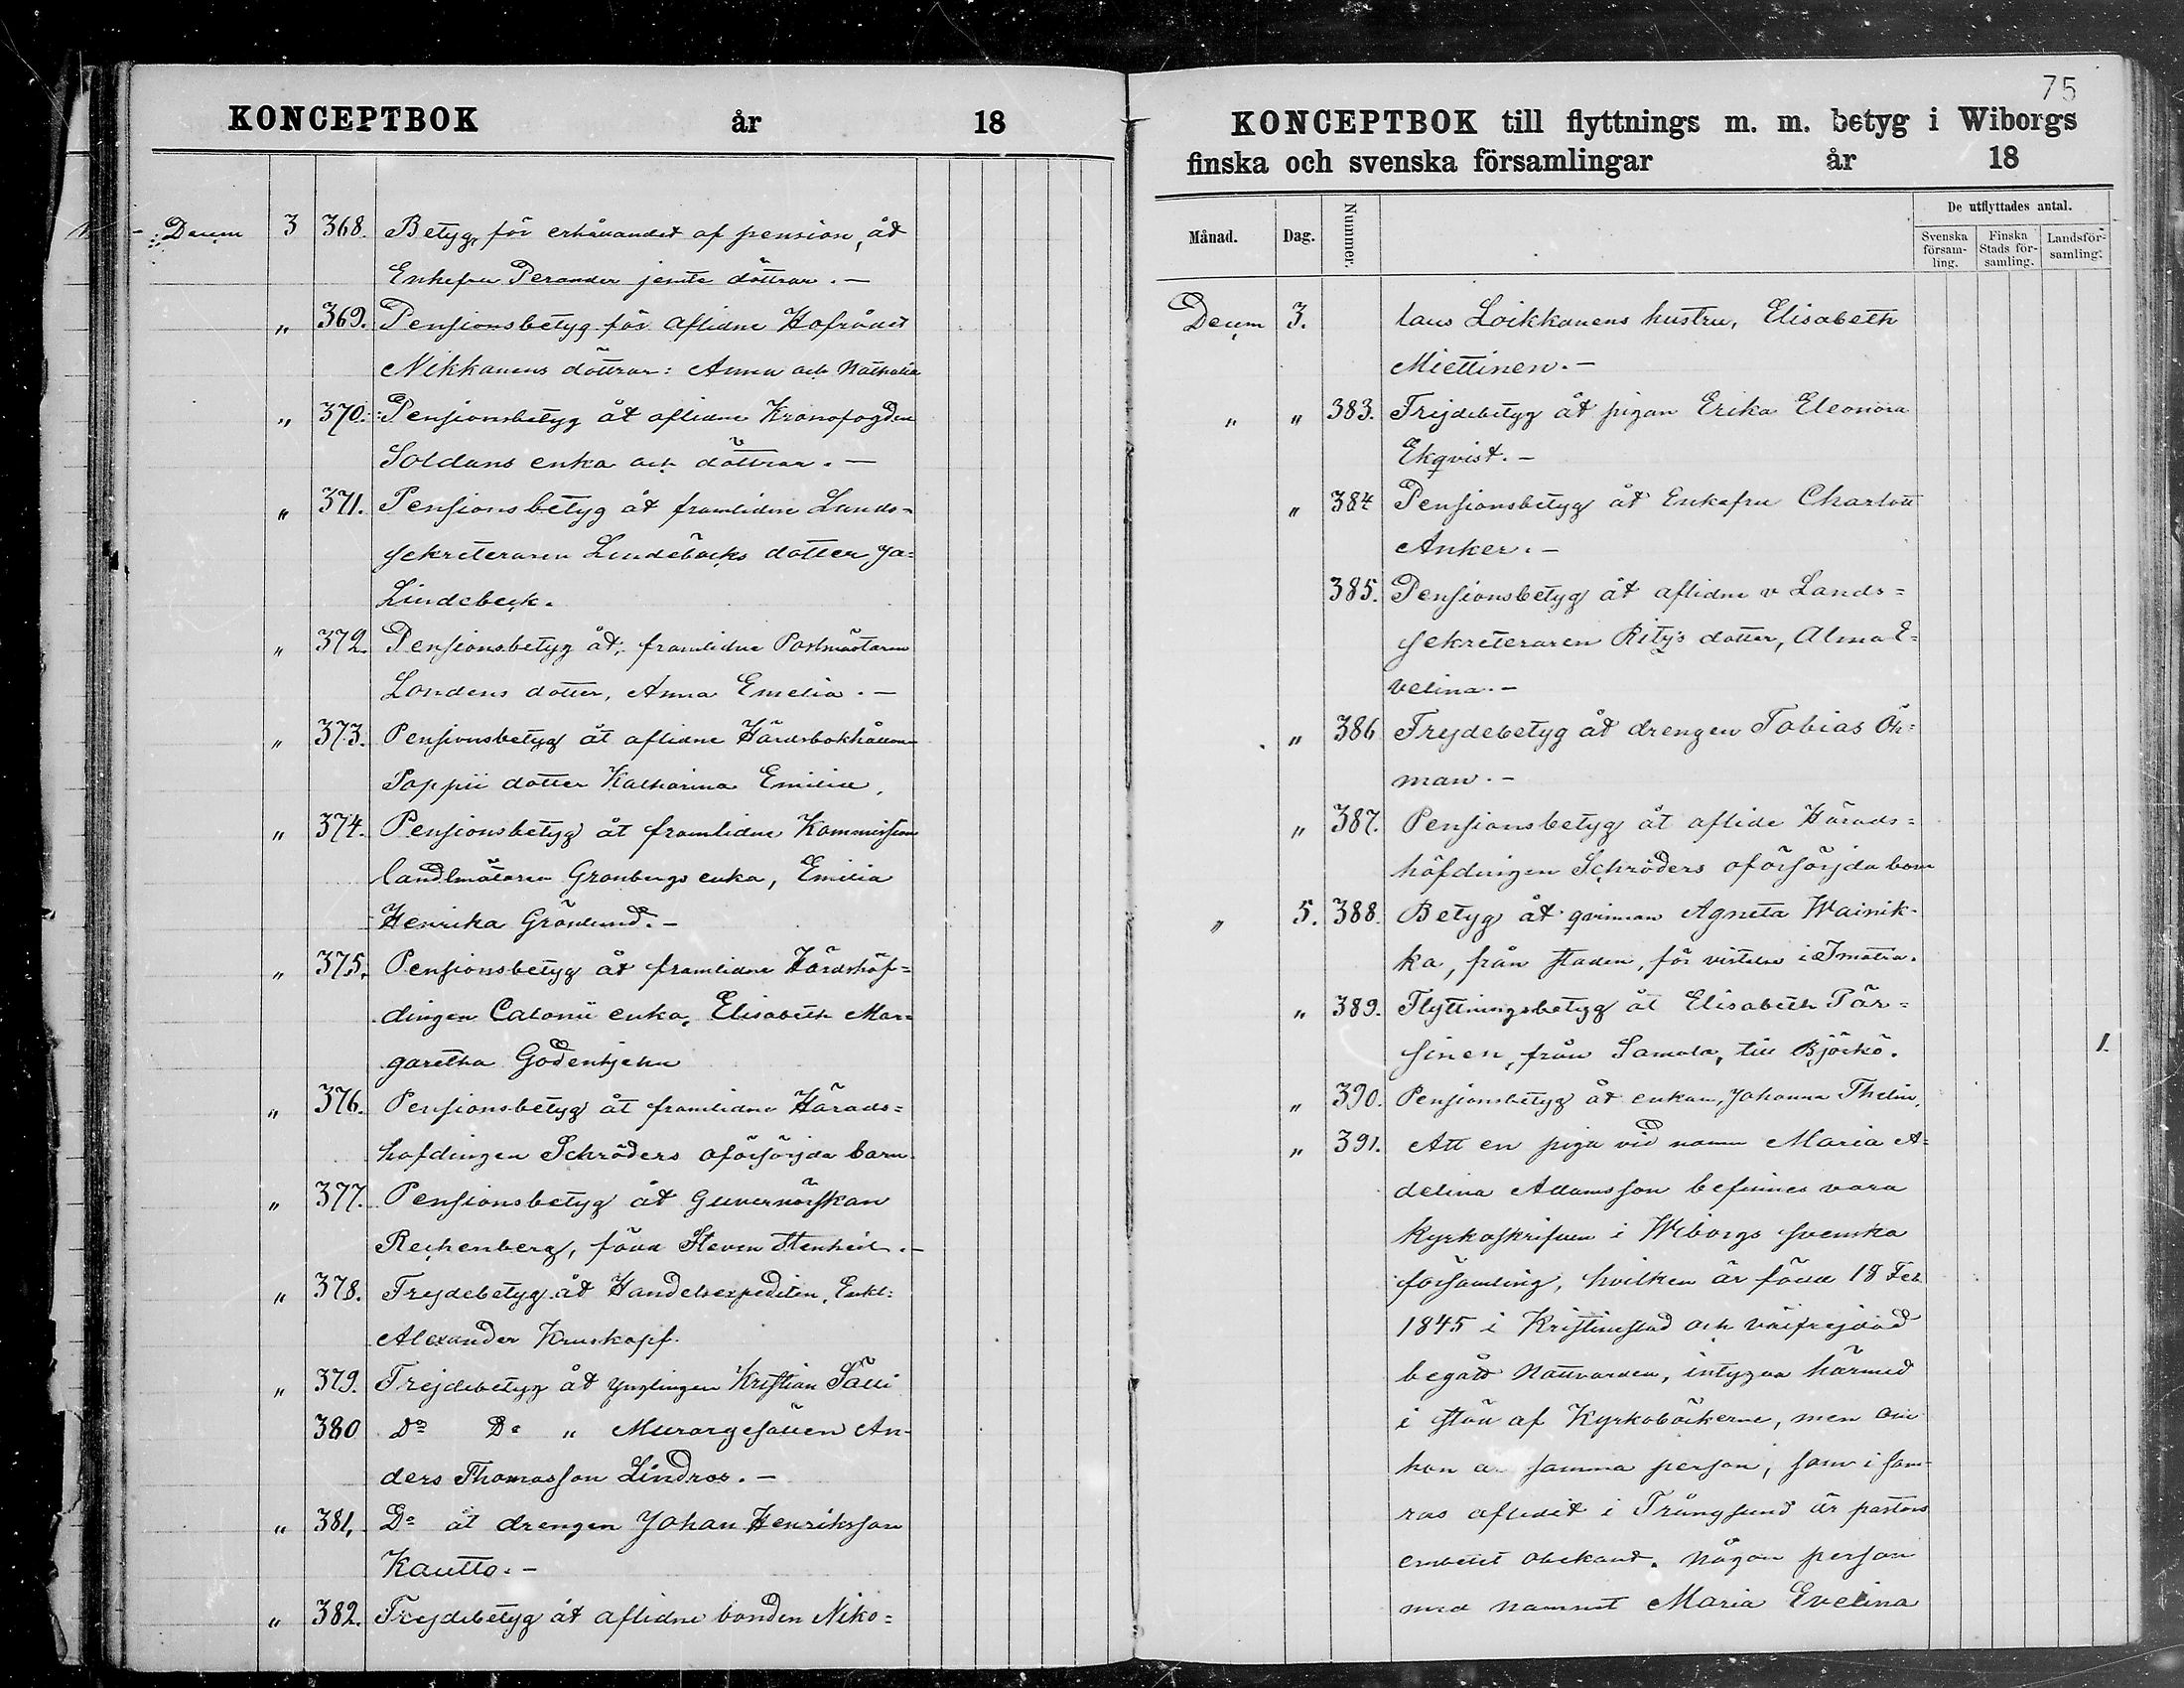 KONCEPTBOK år 18
Decem 3 368. Betyg, för erhållandet af pension, åt
Enkefru Perander jemte döttrar. —
„ 369. Pensionsbetyg för aflidne Hofrådet
Nikkanens döttrar: Anna och Nathalia
„ 370. Pensionsbetyg åt aflidne Kronofogden
Soldans enka och döttrar. —
„ 371. Pensionsbetyg åt framlidne Lands-
sekreteraren Lindebäcks dotter Ja-
Lindebeck.
„ 372. Pensionsbetyg åt framlidne Postmästaren
Londens dotter, Anna Emelia. —
„ 373. Pensionsbetyg åt aflidne
Poppii dotter Katharina Emilia,
„ 374. Pensionsbetyg åt framlidne Kommissions
landtmätaren Grönbergs enka, Emilia
Henrika Grönlund. —
„ 375. Pensionsbetyg åt framlidne Härdshöf=
dingen Calonii enka, Elisabeth Mar=
garetha Godenhjelm
„ 376. Pensionsbetyg åt framlidne Härads=
höfdingen Schröders oförsörjda barn.
„ 377. Pensionsbetyg åt Guvernörskan
Rechenberg, född Steven Stenheil. —
„ 378. Frejdebetyg åt Handelsexpediten,
Alexander Kruskopf.
„ 379. Frejdebetyg åt Ynglingen Kristian Sälli
380 Do Do „ Murargesällen An-
ders Thomasson Lindroos. —
„ 381. Do åt drengen Johan Henriksson
Kautto. —
„ 382. Frejdebetyg åt aflidne bonden Niko=
75
KONCEPTBOK till flyttnings m. m. betyg i Wiborgs
finska och svenska församlingar år 18
Månad. Dag. Nummer. De utflyttades antal.
Svenska försam-ling. Finska Stads för-samling. Landsför-samling.
Decem 3. laus Loikkanens hustru, Elisabeth
Miettinen. —
„ „ 383. Frejdebetyg åt pigan Erika Eleonora
Ekqvist. —
„ 384 Pensionsbetyg åt Enkefru Charlott
Anker. —
385. Pensionsbetyg åt aflidne v Lands=
sekreteraren dotter, Alma E=
velina. —
„ 386 Frejdebetyg åt drengen Tobias Öh=
man. —
„ 387. Pensionsbetyg åt aflide Härads=
höfdingen Schröders oförsörjda barn
„ 5. 388. Betyg åt qvinnan Agneta Wainik-
ka, från staden, för vistelse i Imatra.
„ 389. Flyttningsbetyg åt Elisabeth Pär=
sinen, från Samola, till Björkö. 1.
„ 390. Pensionsbetyg åt enkan, Johanna Thelin,
„ 391. Att en piga vid namn Maria A=
delina Adamsson befinnes vara
kyrkoskrifven i Wiborgs svenska
församling, hvilken är född 18 Feb
1845 i Kristinestad och välfrejdad
begått Nattvarden, intygas härmed
i stöd af Kyrkoböckerne, men om
hon är samma person, som i som-
ras aflidit i Trångsund är pastors
embetet obekant. Någon person
med namnet Maria Evelina